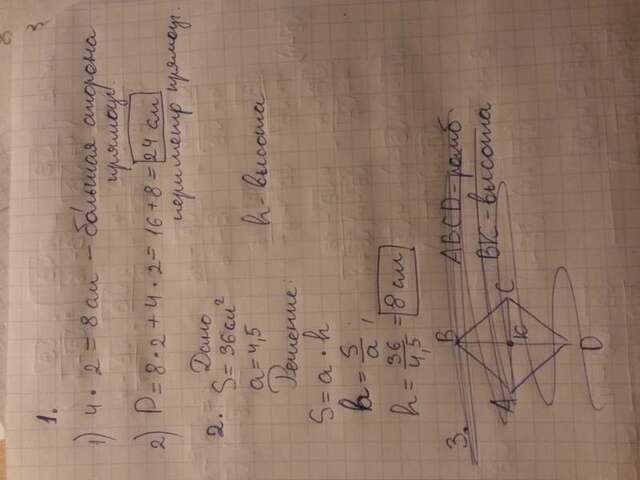 1.
1) 4 · 2 = 8 см – бо́льшая сторона
прямоуг.
2) P = 8 · 2 + 4 · 2 = 16 + 8 = 24 см
периметр прямоуг.
2. Дано
S = 36 см²
a = 4,5
h - высота
Решение:
S = a · h
h = S/a ,
h = 36/4,5 = 8 см
3.
ABCD - ромб
BK - высота
B
A
K
C
D